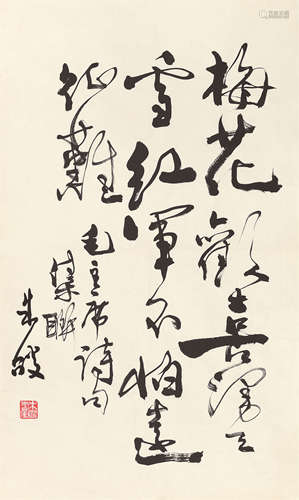 梅花歡喜漫天
雪紅軍不怕遠
征難
毛主席詩句
集聯
朱